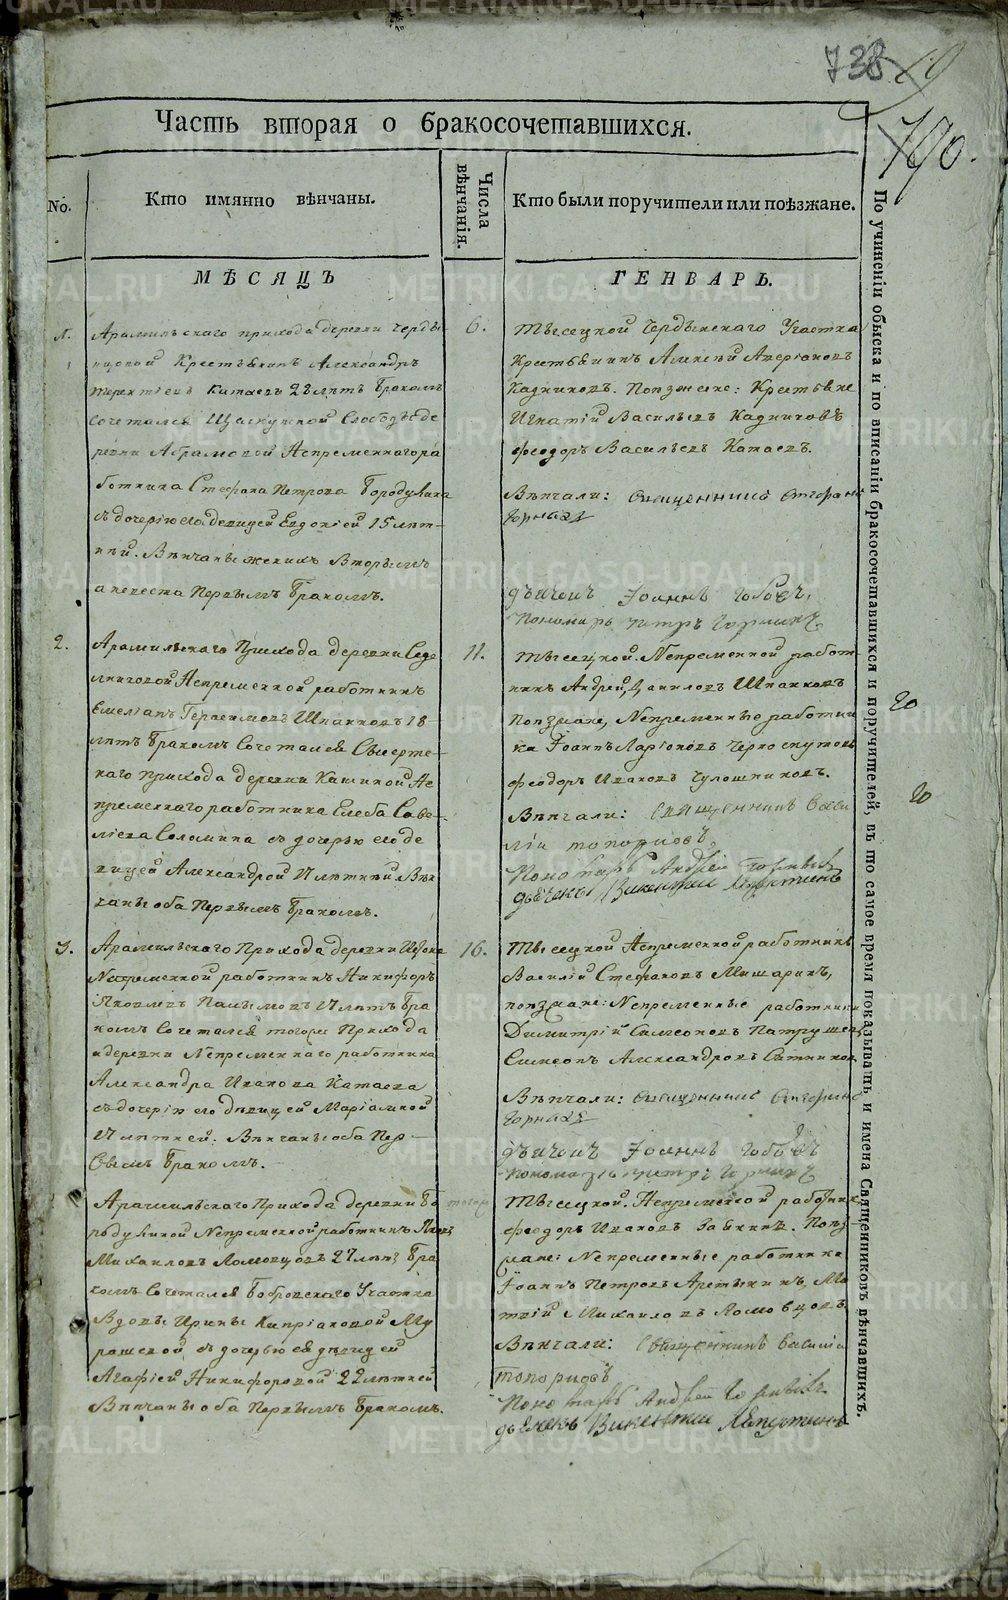 738 19
790.
Часть вторая о бракосочетавшихся.
No.
Кто имянно вѣнчаны.
Числа вѣнчанія.
Кто были поручители или поѣзжане.
МѢСЯЦЪ
ГЕНВАРЬ.
1.
Арамильскаго прихода деревни Черды-
нцовой Крестьянинъ Александръ
Терентьевъ Катаевъ 28 лѣтъ бракомъ
сочетался Щелкунской Слободы де
ревни Абрамовой Непремѣннаго ра
ботника Стефана Петрова Бородулина
съ дочерію его девицей Евдокіей 15 лѣт-
ней. Вѣнчаны женихъ Вторымъ
а невеста Первымъ бракомъ.
6.
Тѣвсецкой Чердынскаго Участка
Крестьянинъ Алексѣй
Кадниковъ. Поѣзжане: Крестьяне
Игнатій Васильевъ Кадниковъ
Феодоръ Васильевъ Катаевъ.
Вѣнчали: Священникъ Стефанъ
дьячокъ Іоаннъ
Пономарь Петръ
2.
Арамильскаго Прихода деревни Седе
льниковой Непременной работникъ
Емеліанъ Герасимовъ Шпанковъ 18
лѣтъ бракомъ Сочетался Сысертс-
каго прихода деревни Кашиной Не
премѣннаго работника Глеба Саве-
лiева Соломина съ дочерью его де
вицей Александрой 17 лѣтней Вѣн
чаны оба Первымъ бракомъ.
11.
Непременной работ
никъ Андрей Даниловъ Шпанковъ
Поѣзжане, Непременные работни
ки Іоаннъ Ларіоновъ Черноскутовъ
Феодоръ Ивановъ
Вѣнчали: Священникъ Васи
лій Топорковъ
Пономарь Андрей
дьячекъ Викентій
20
20
3.
Арамильскаго Прихода деревни
Непременной работникъ Никифоръ
Яковлевъ 17 лѣтъ бра
комъ Сочетался тогожъ Прихода
и деревни Непременнаго работника
Александра Иванова Катаева
съ дочерію его дѣвицей Маріамной
17 лѣтней. Вѣнчаны оба Пер-
вымъ бракомъ.
16.
Непременной работникъ
Василій Стефановъ Мишаринъ,
поѣзжане: Непременные работники
Димитрій Симеоновъ Патрушевъ
Симеонъ Александровъ Ситниковъ
Вѣнчали: Священникъ Стефанъ
дьячокъ Іоаннъ
Пономарь Петръ
Арамильскаго Прихода деревни Бо
родулиной Непременной работникъ Яковъ
Михаиловъ Ломовцовъ 27 лѣтъ бра
комъ Сочетался Бобровскаго Участка
Вдовы Ирины Кипріановой Му
рашевой съ дочерью ея дѣвицей
Агафіей Никифоровой 22 лѣтней
Вѣнчаны оба Первымъ бракомъ.
тогожъ
Непременной работникъ
Феодоръ Ивановъ Поѣз
жане: Непременные работники
Іоаннъ Петровъ Ма
твѣй Михаиловъ Ломовцовъ.
Вѣнчали: Священникъ Василій
Топорковъ
Пономарь Андрей
дьячекъ Викентій
По учиненіи обыска и по вписаніи бракосочетавшихся и поручителей, въ то самое время показывать и имена Священниковъ вѣнчавшихъ.
METRIKI.GASO-URAL.RU